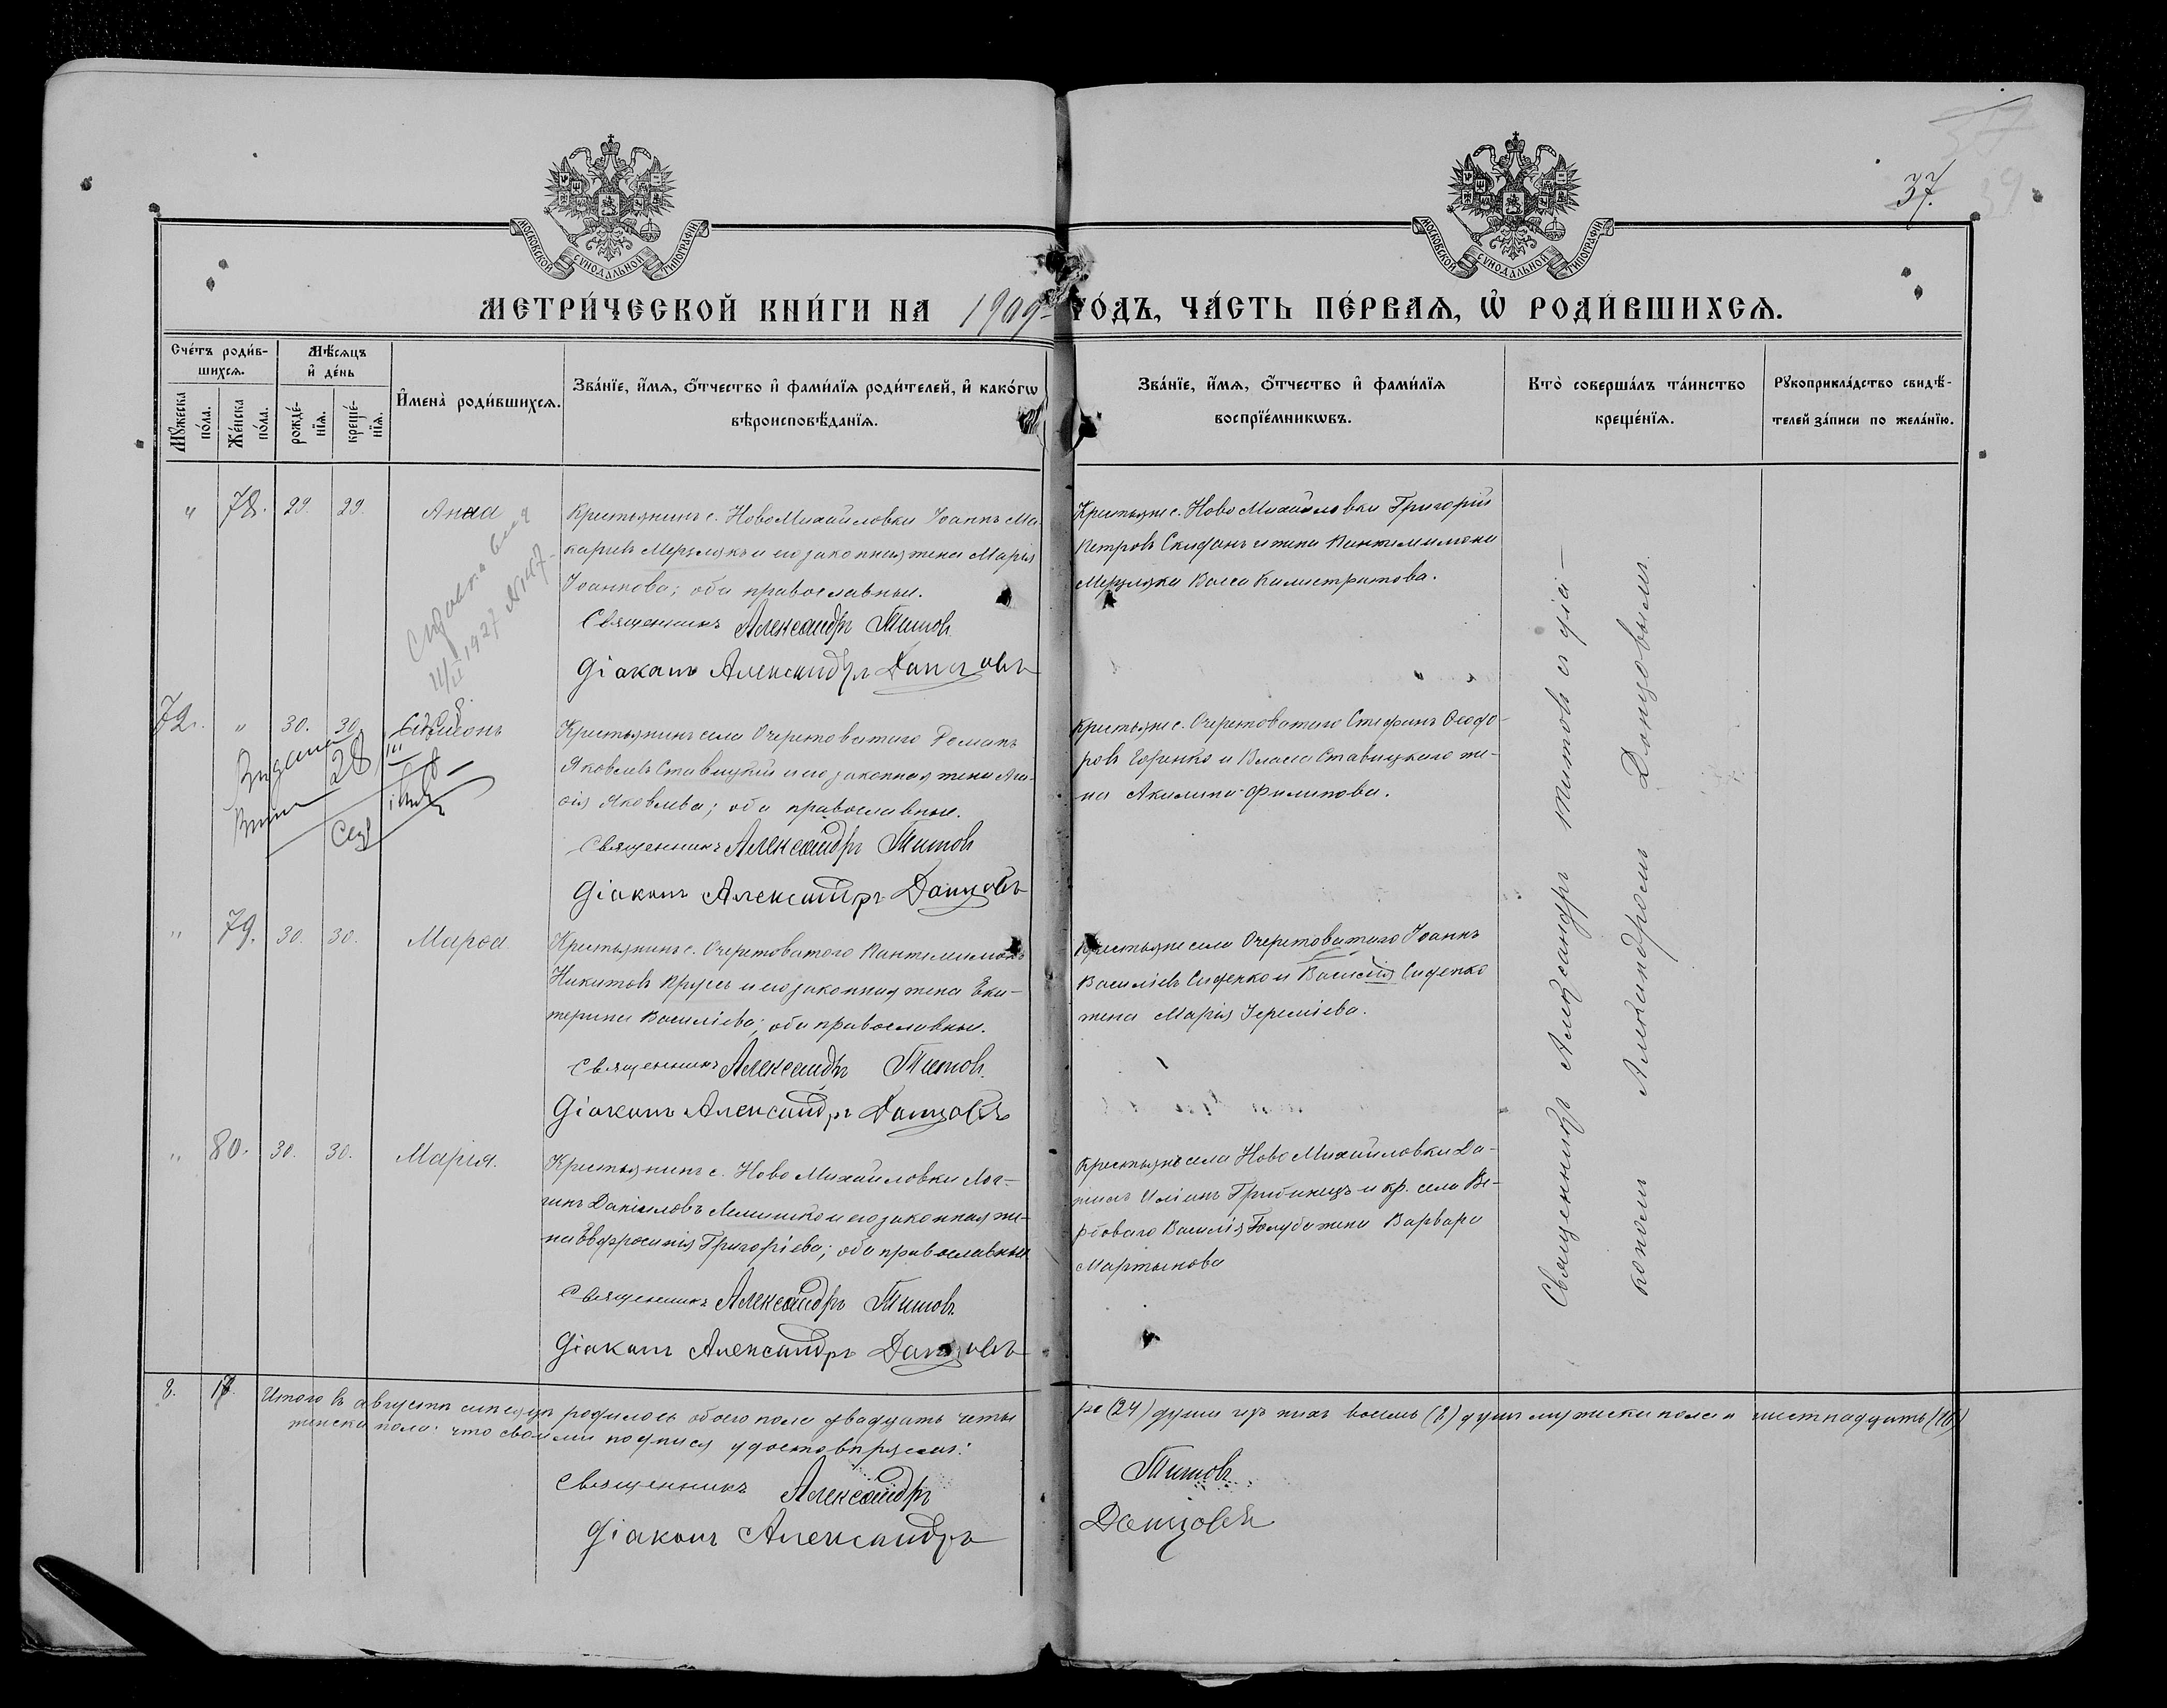 37.
МОСКОВСКОЙ СѴНОДАЛЬНОЙ ТИПОГРАФІИ
МОСКОВСКОЙ СѴНОДАЛЬНОЙ ТИПОГРАФІИ
МЕТРИ́ЧЕСКОЙ КНИ́ГИ НА 1909 ГО́ДЪ, ЧА́СТЬ ПЕ́РВАѦ, Ѡ҆ РОДИ́ВШИХСѦ.
Сче́тъ роди́в-
шихсѧ.
Мꙋ́жеска по́ла.
Же́нска по́ла.
Мѣ́сѧцъ
и҆ де́нь
рожде́-
нїѧ.
креще́-
нїѧ.
И҆мена̀ роди́вшихсѧ.
Зва́нїе, и҆́мѧ, ѻ҆́тчество и҆ фами́лїѧ роди́телей, и҆ како́гѡ
вѣроисповѣ́данїѧ.
Зва́нїе, и҆́мѧ, ѻ҆́тчество и҆ фами́лїѧ
воспрїе́мникѡвъ.
Кто̀ соверша́лъ та́инство
креще́нїѧ.
Рꙋкоприкла́дство свидѣ́-
телей за́писи по жела́нїю.
" 78. 29. 29. Анна
Крестьянинъ с. НовоМихайловки Іоаннъ Ма-
каріевъ Мерзлякъ и его законная жена Марія
Іоаннова; оба православные.
Священникъ Александръ Титовъ
Діаконъ Александръ Донцовъ
Крестьяне с. Ново Михайловки Григорій
Петровъ Скиданъ и жена Пантелимона
Мерзляка Васса Калистратова.
11/II 1927 №147
72. " 30. 30. Симеонъ
Крестьянинъ села Очеретоватаго Романъ
Яковлевъ Ставицкій и его законная жена Ага-
ѳія Яковлева; оба православные.
Священникъ Александръ Титовъ
Діаконъ Александръ Донцовъ
Крестьяне с. Очеретоватаго Стефанъ Ѳеодо-
ровъ Горенко и Власа Ставицкаго же-
на Акилина Филипова.
28/III
" 79. 30. 30. Марѳа
Крестьянинъ с. Очеретоватого Пантелимонъ
Никитовъ Крусь и его законная жена Ека-
терина Василіева; оба православные.
Священникъ Александръ Титовъ.
Діаконъ Александръ Донцовъ
Крестьяне села Очеретоватаго Іоаннъ
Василіевъ Сиденко и Василія Сиденко
жена Марія Іереміева.
" 80. 30. 30. Марія.
Крестьянинъ с. Ново Михайловки Лог-
инъ Даніиловъ Лемешко и его законная же-
на Евфросинія Григоріева; оба православные
Священникъ Александръ Титовъ
Діаконъ Александръ Донцовъ
Крестьяне села Ново Михайловки Да-
Грибинецъ и кр. села Ве-
рбоваго Василія Голуба жена Варвара
Мартынова
Священникъ Александръ Титовъ съ діа-
кономъ Александромъ Донцовымъ.
8. 16. Итого въ августѣ мѣсяцѣ родилось обоего пола двадцать четы-
ре (24) души изъ нихъ восемь (8) душъ мужеска пола и шестнадцать (16)
женска пола: что своими подписями удостовѣряемъ:
Священникъ Александръ Титовъ
Діаконъ Александръ Донцовъ